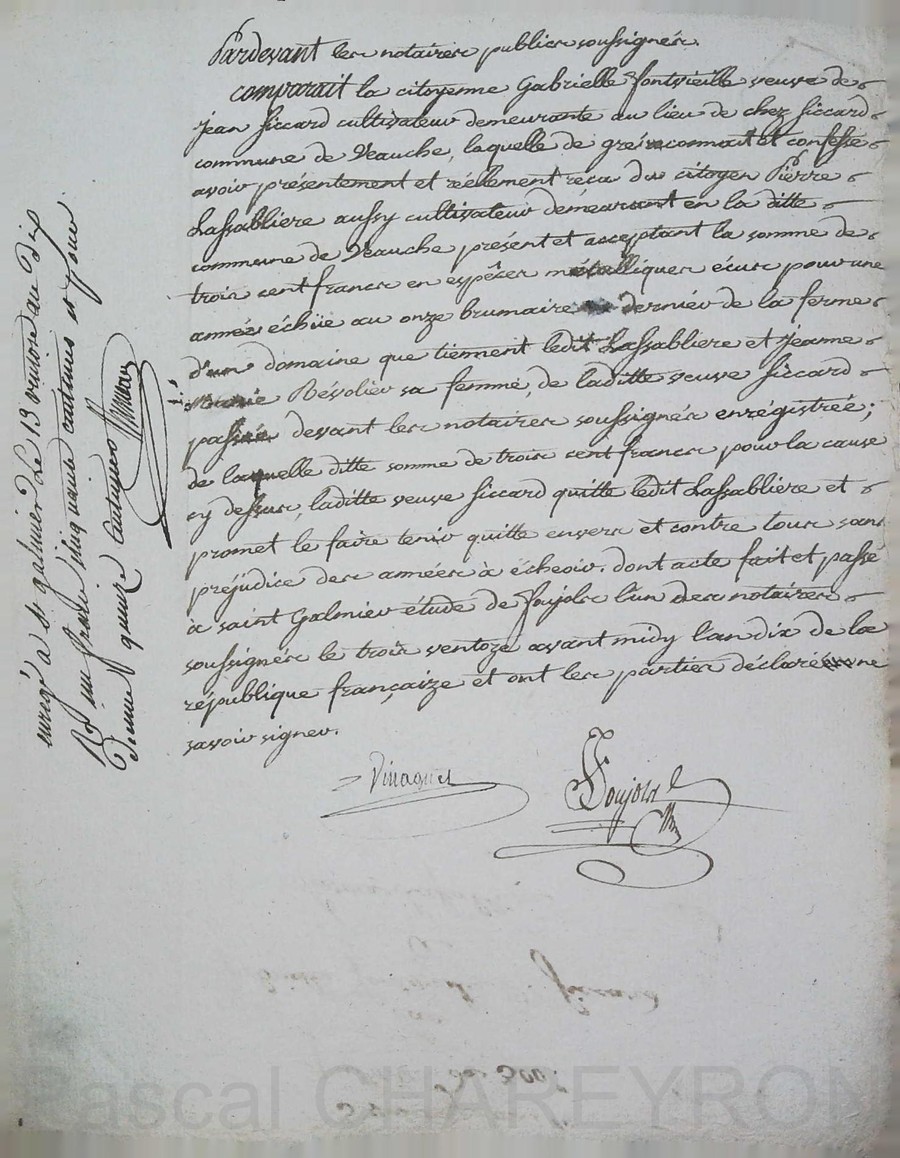 Pardevant les notaires publics soussignés.
comparait la citoyenne Gabrielle fontvieille veuve de
jean Siccard cultivateur demeurante au lieu de chez Siccard
commune de Veauche, laquelle de gré reconnait et confesse
avoir présentement et réellement reçu du citoyen Pierre
Lassabliere aussy cultivateur demeurant en la ditte
commune de Veauche présent et acceptant la somme de
trois cent francs en espêces métalliques écus pour une
année échüe au onze brumaire dernier de la ferme
d'un domaine que tiennent ledit Lassabliere et jeanne
Marie Révolier sa femme, de laditte veuve Siccard
passée devant les notaires soussignés enrégistrée;
de laquelle ditte somme de trois cent francs pour la cause
cy dessus, laditte veuve Siccard quitte ledit Lassabliere et
promet le faire tenir quitte envers et contre tous sans
préjudice des années à écheoir. dont acte fait et passé
à saint Galmier étude de Soujols l'un des notaires
soussignés le trois ventoze avant midy l'an dix de la
république françaize et ont les parties déclaré ne
savoir signer.
Soujols
enregé à st galmier le 13 ventose an dix
Rç un franc cinquante centimes et pour
quinze centimes
Siccard
300
Pascal CHAREYRON